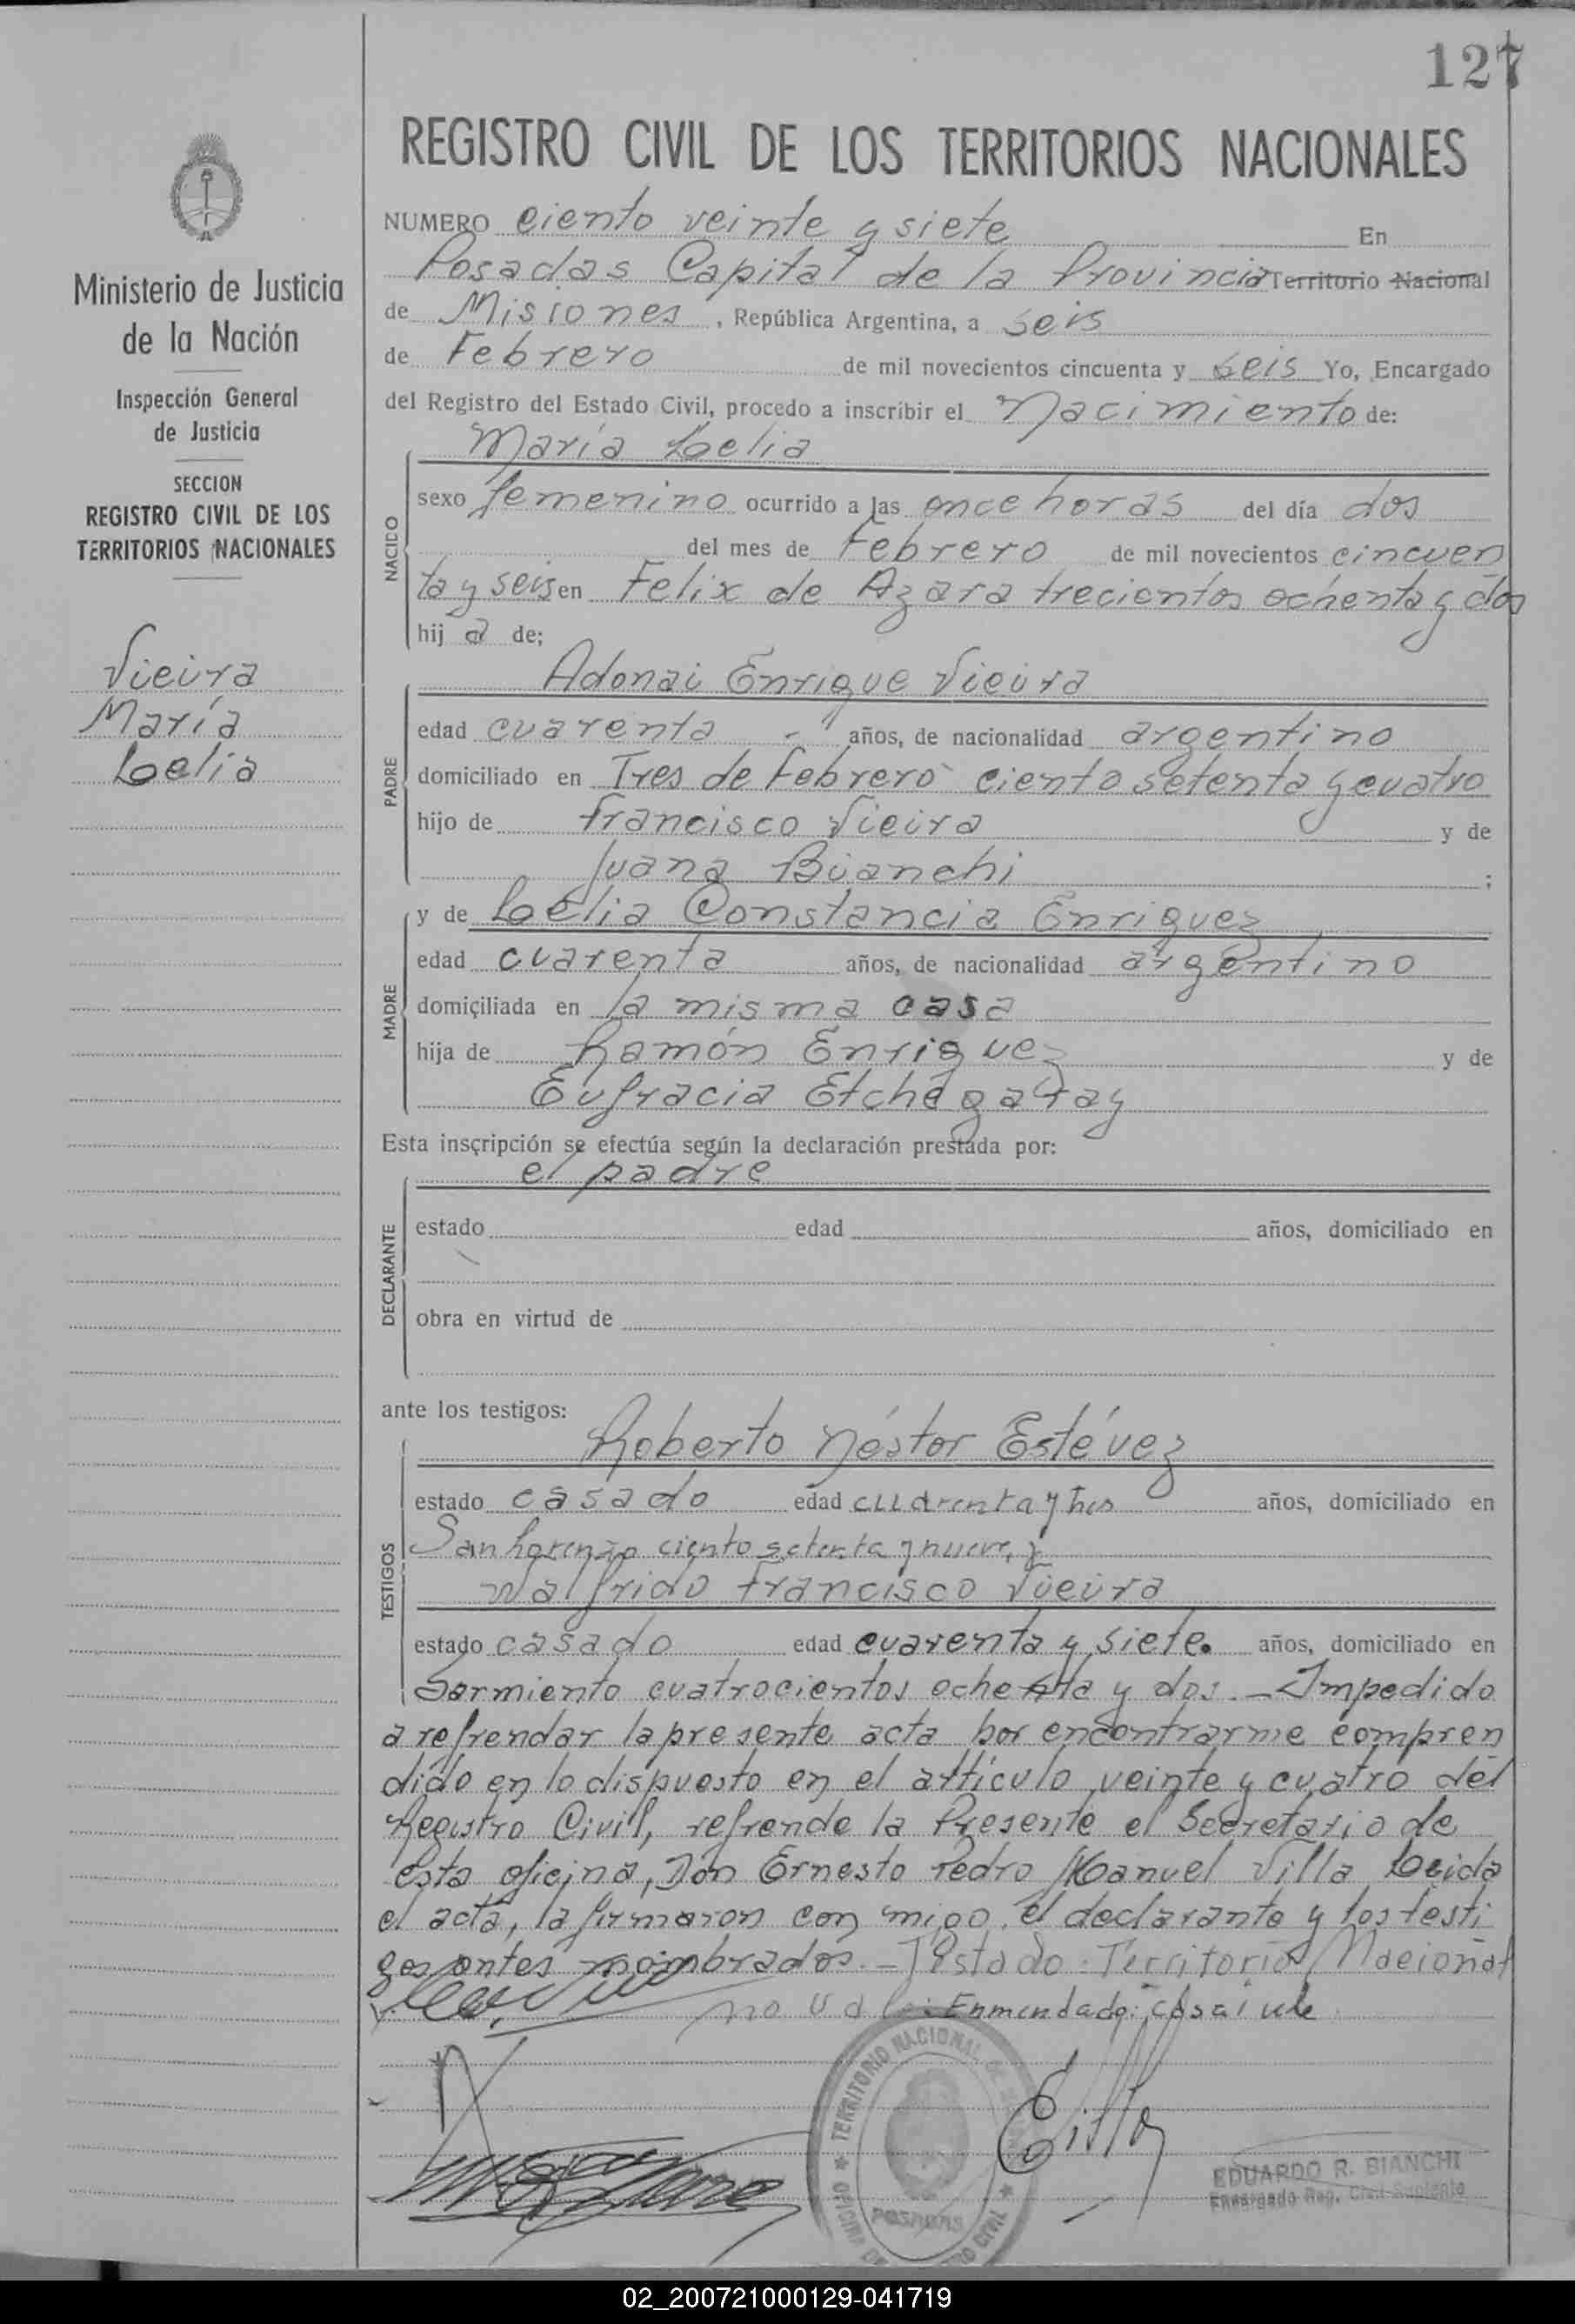 127
REGISTRO CIVIL DE LOS TERRITORIOS NACIONALES
Ministerio de Justicia
de la Nación
Inspección General
de Justicia
SECCION
REGISTRO CIVIL DE LOS
TERRITORIOS NACIONALES
Vieira
María
Lelia
NUMERO ciento veinte y siete En
Posadas Capital de la Provincia Territorio Nacional
de Misiones, República Argentina, a seis
de Febrero de mil novecientos cincuenta y seis Yo, Encargado
del Registro del Estado Civil, procedo a inscribir el Nacimiento de:
María Lelia
NACIDO
sexo femenino ocurrido a las once horas del día dos
del mes de Febrero de mil novecientos cincuen
ta y seis en Felix de Azara trecientos ochenta y dos
hij a de;
Adonai Enrique Vieira
PADRE
edad cuarenta años, de nacionalidad argentino
domiciliado en Tres de Febrero ciento setenta y cuatro
hijo de Francisco Vieira y de
Juana Bianchi ;
MADRE
y de Lelia Constancia Enriquez
edad cuarenta años, de nacionalidad argentino
domiciliada en la misma casa
hija de Ramón Enriquez y de
Eufracia Etchegaray
Esta inscripción se efectúa según la declaración prestada por:
el padre
DECLARANTE
estado edad años, domiciliado en
obra en virtud de
ante los testigos:
Roberto Néstor Estévez
TESTIGOS
estado casado edad cuarenta y tres años, domiciliado en
San Lorenzo ciento setenta y nueve, y
Walfrido Francisco Vieira
estado casado edad cuarenta y siete. años, domiciliado en
Sarmiento cuatrocientos ochenta y dos. - Impedido
a refrendar la presente acta por encontrarme compren
dido en lo dispuesto en el artículo veinte y cuatro del
Registro Civil, refrende la Presente el Secretario de
esta oficina, Don Ernesto Pedro Manuel Villa Leida
el acta, la firmaron con migo, el declarante y los testi
gos antes nombrados. - Testado: Territorio Nacional
no vale: Enmendado: casa: vale
TERRITORIO NACIONAL DE
POSADAS
EDUARDO R. BIANCHI
Encargado Reg. Civil Suplente
02_200721000129-041719